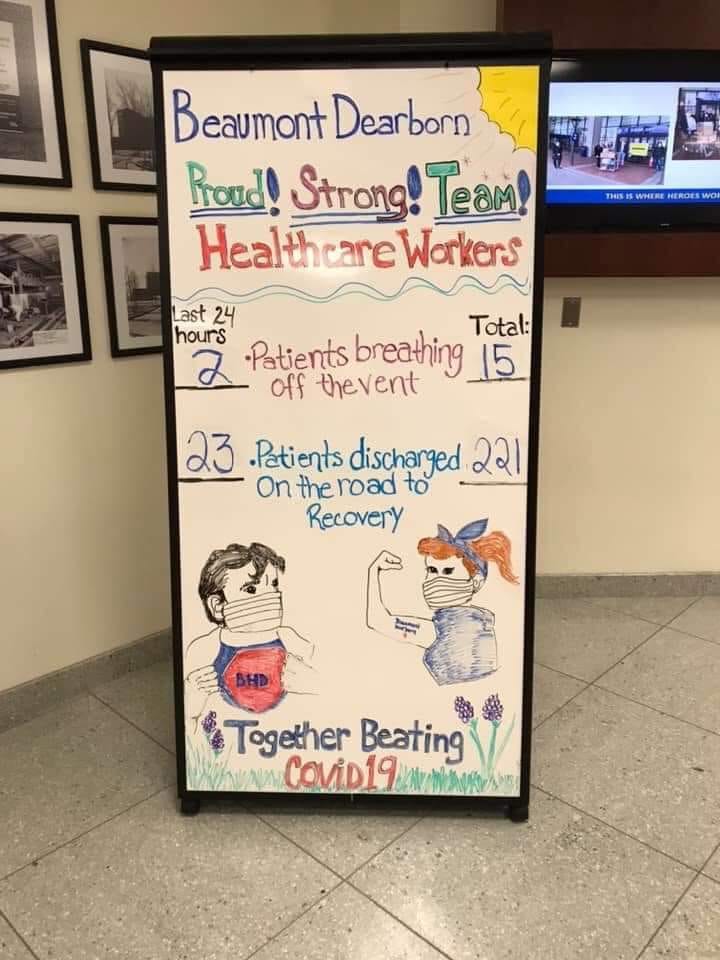 Beaumont Dearborn
Proud! Strong! Team!
Healthcare Workers
Last 24
hours
Total:
2 •Patients breathing 15
off the vent
23 •Patients discharged 221
On the road to
Recovery
Beaumont
BHD
Together Beating
Covid19
THIS IS WHERE HEROES WO